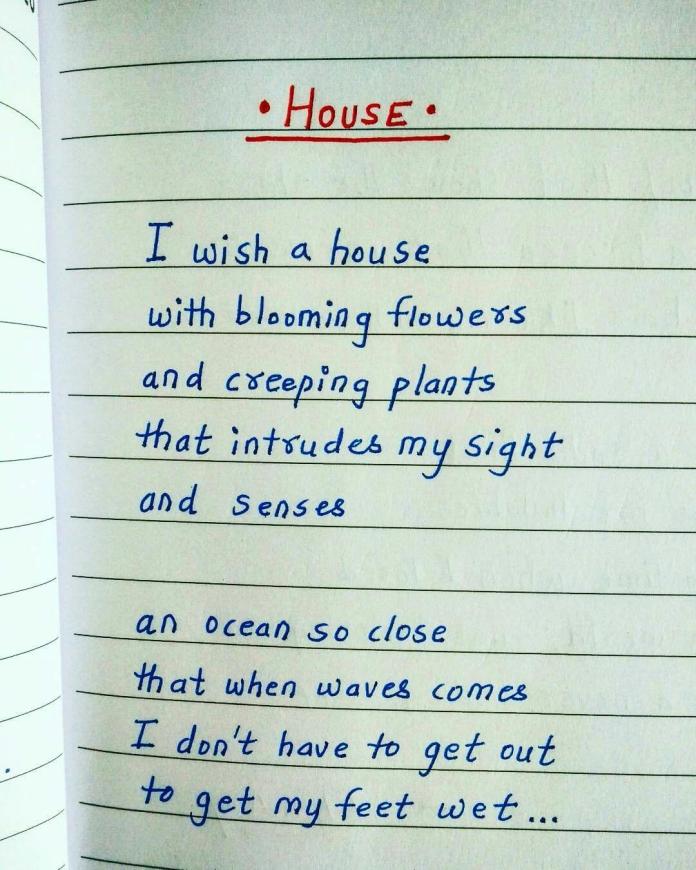 • HOUSE •
I wish a house
with blooming flowers
and creeping plants
that intrudes my sight
and senses
an ocean so close
that when waves comes
I don't have to get out
to get my feet wet...